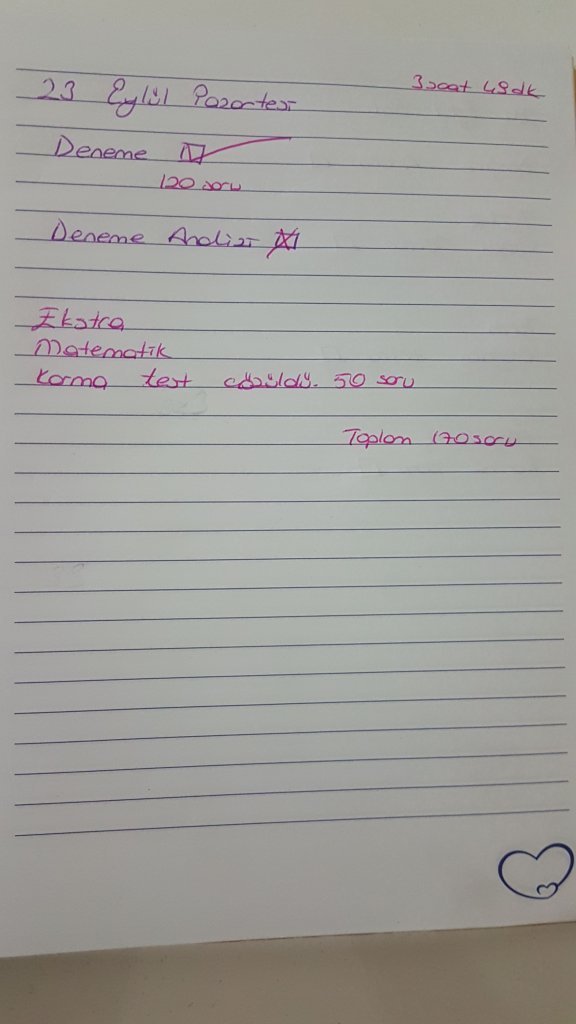 23 Eylül Pazartesi
3 saat 49 dk
Deneme
120 soru
Deneme Analizi
Ekstra
Matematik
Karma test çözüldü. 50 soru
Toplam 170 soru